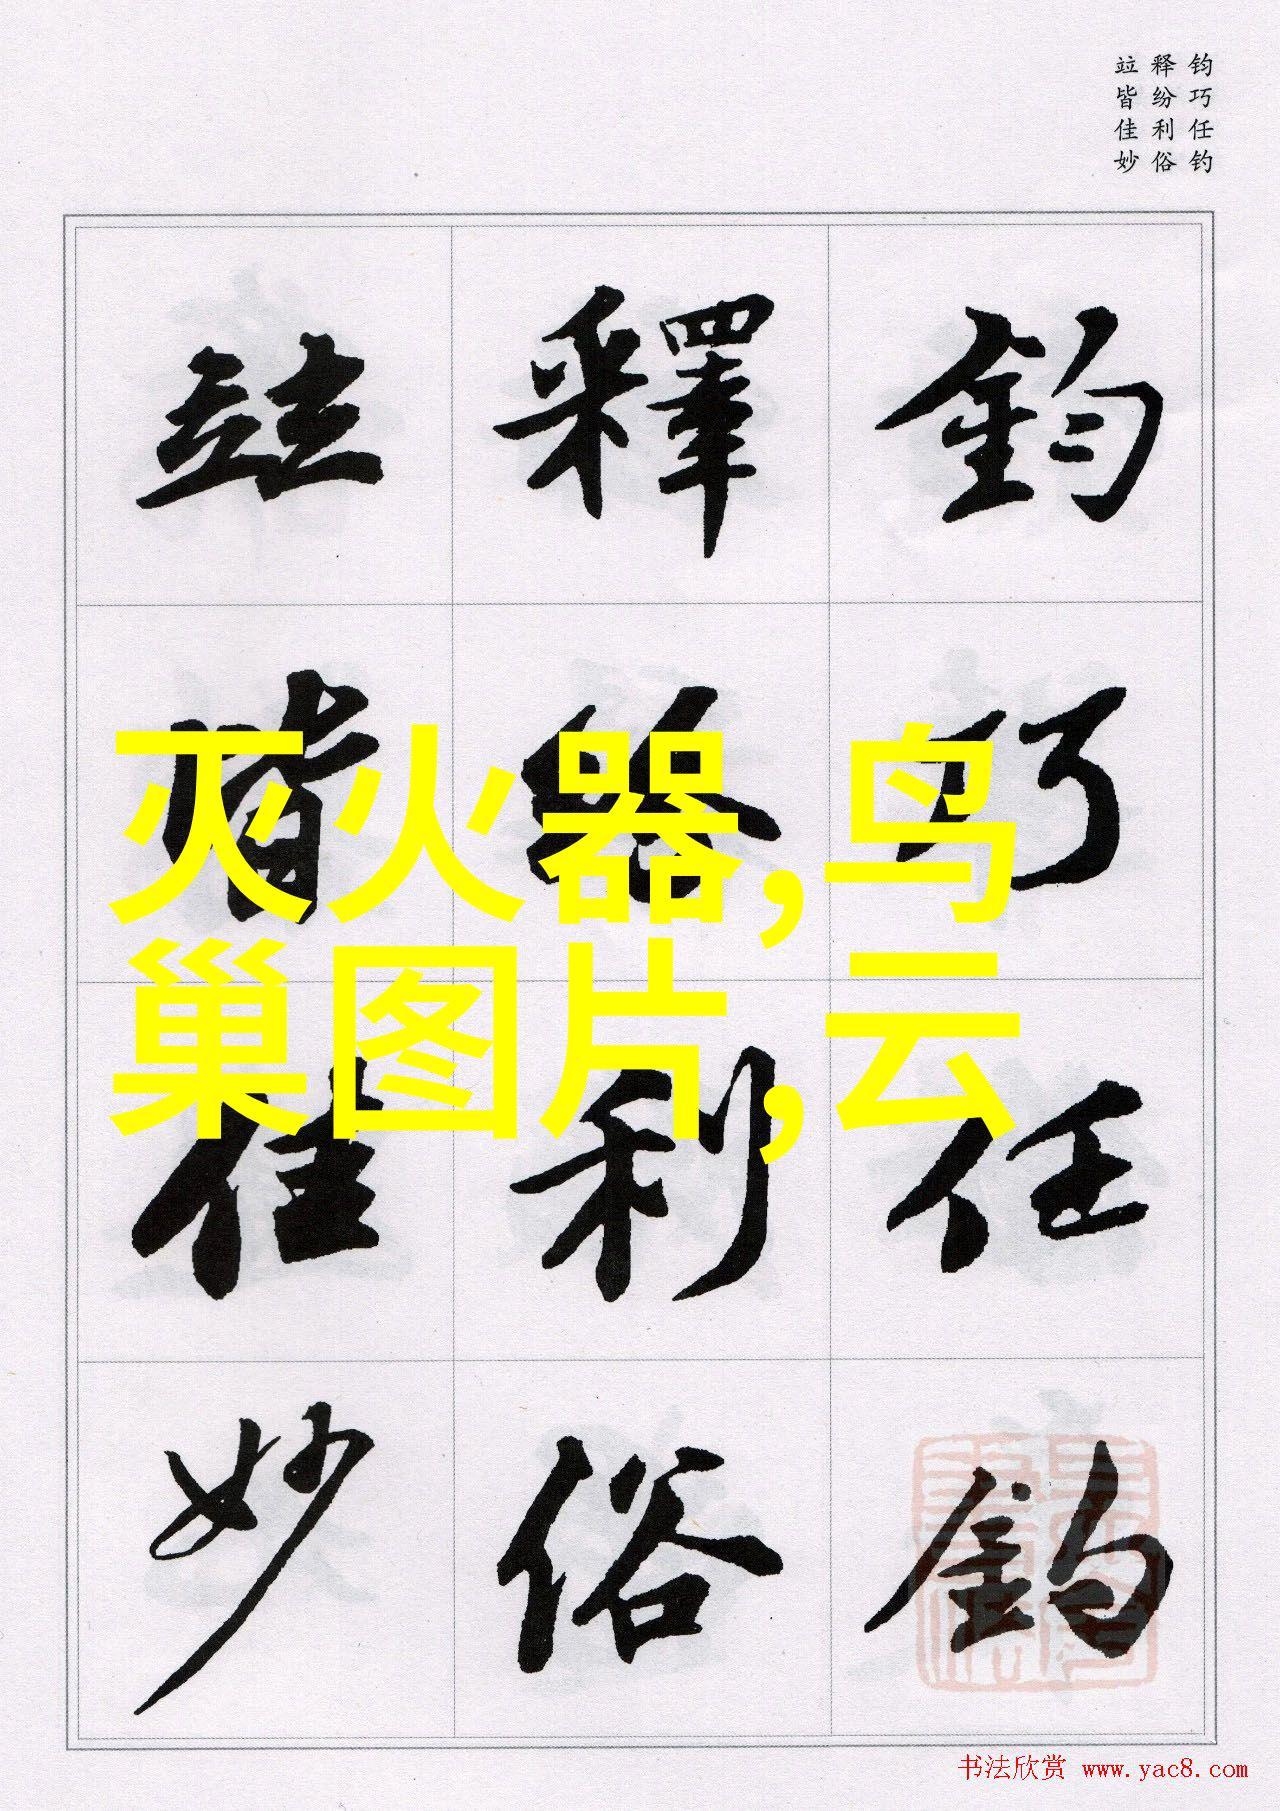 钧巧任钓
释纷利俗
竝皆佳妙
鈞巧任釣
釋紛利俗
竝皆佳妙
灭火器,鸟
巢图片,云
书法欣赏 www.yac8.com